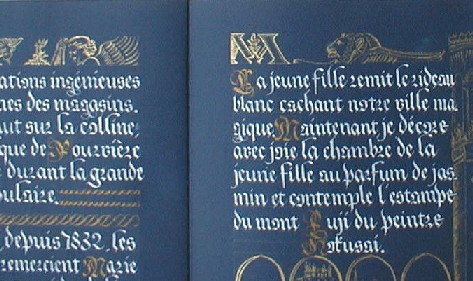 ations ingénieuses
es des magasins.
ut sur la colline,
que de Fourvière
durant la grande
pulaire.
depuis 1832, les
remercient Marie
La jeune fille remit le rideau
blanc cachant notre ville ma
gique Maintenant je décore
avec joie la chambre de la
jeune fille au parfum de jas
min et contemple l'estampe
du mont Fuji du peintre
Hokusai.